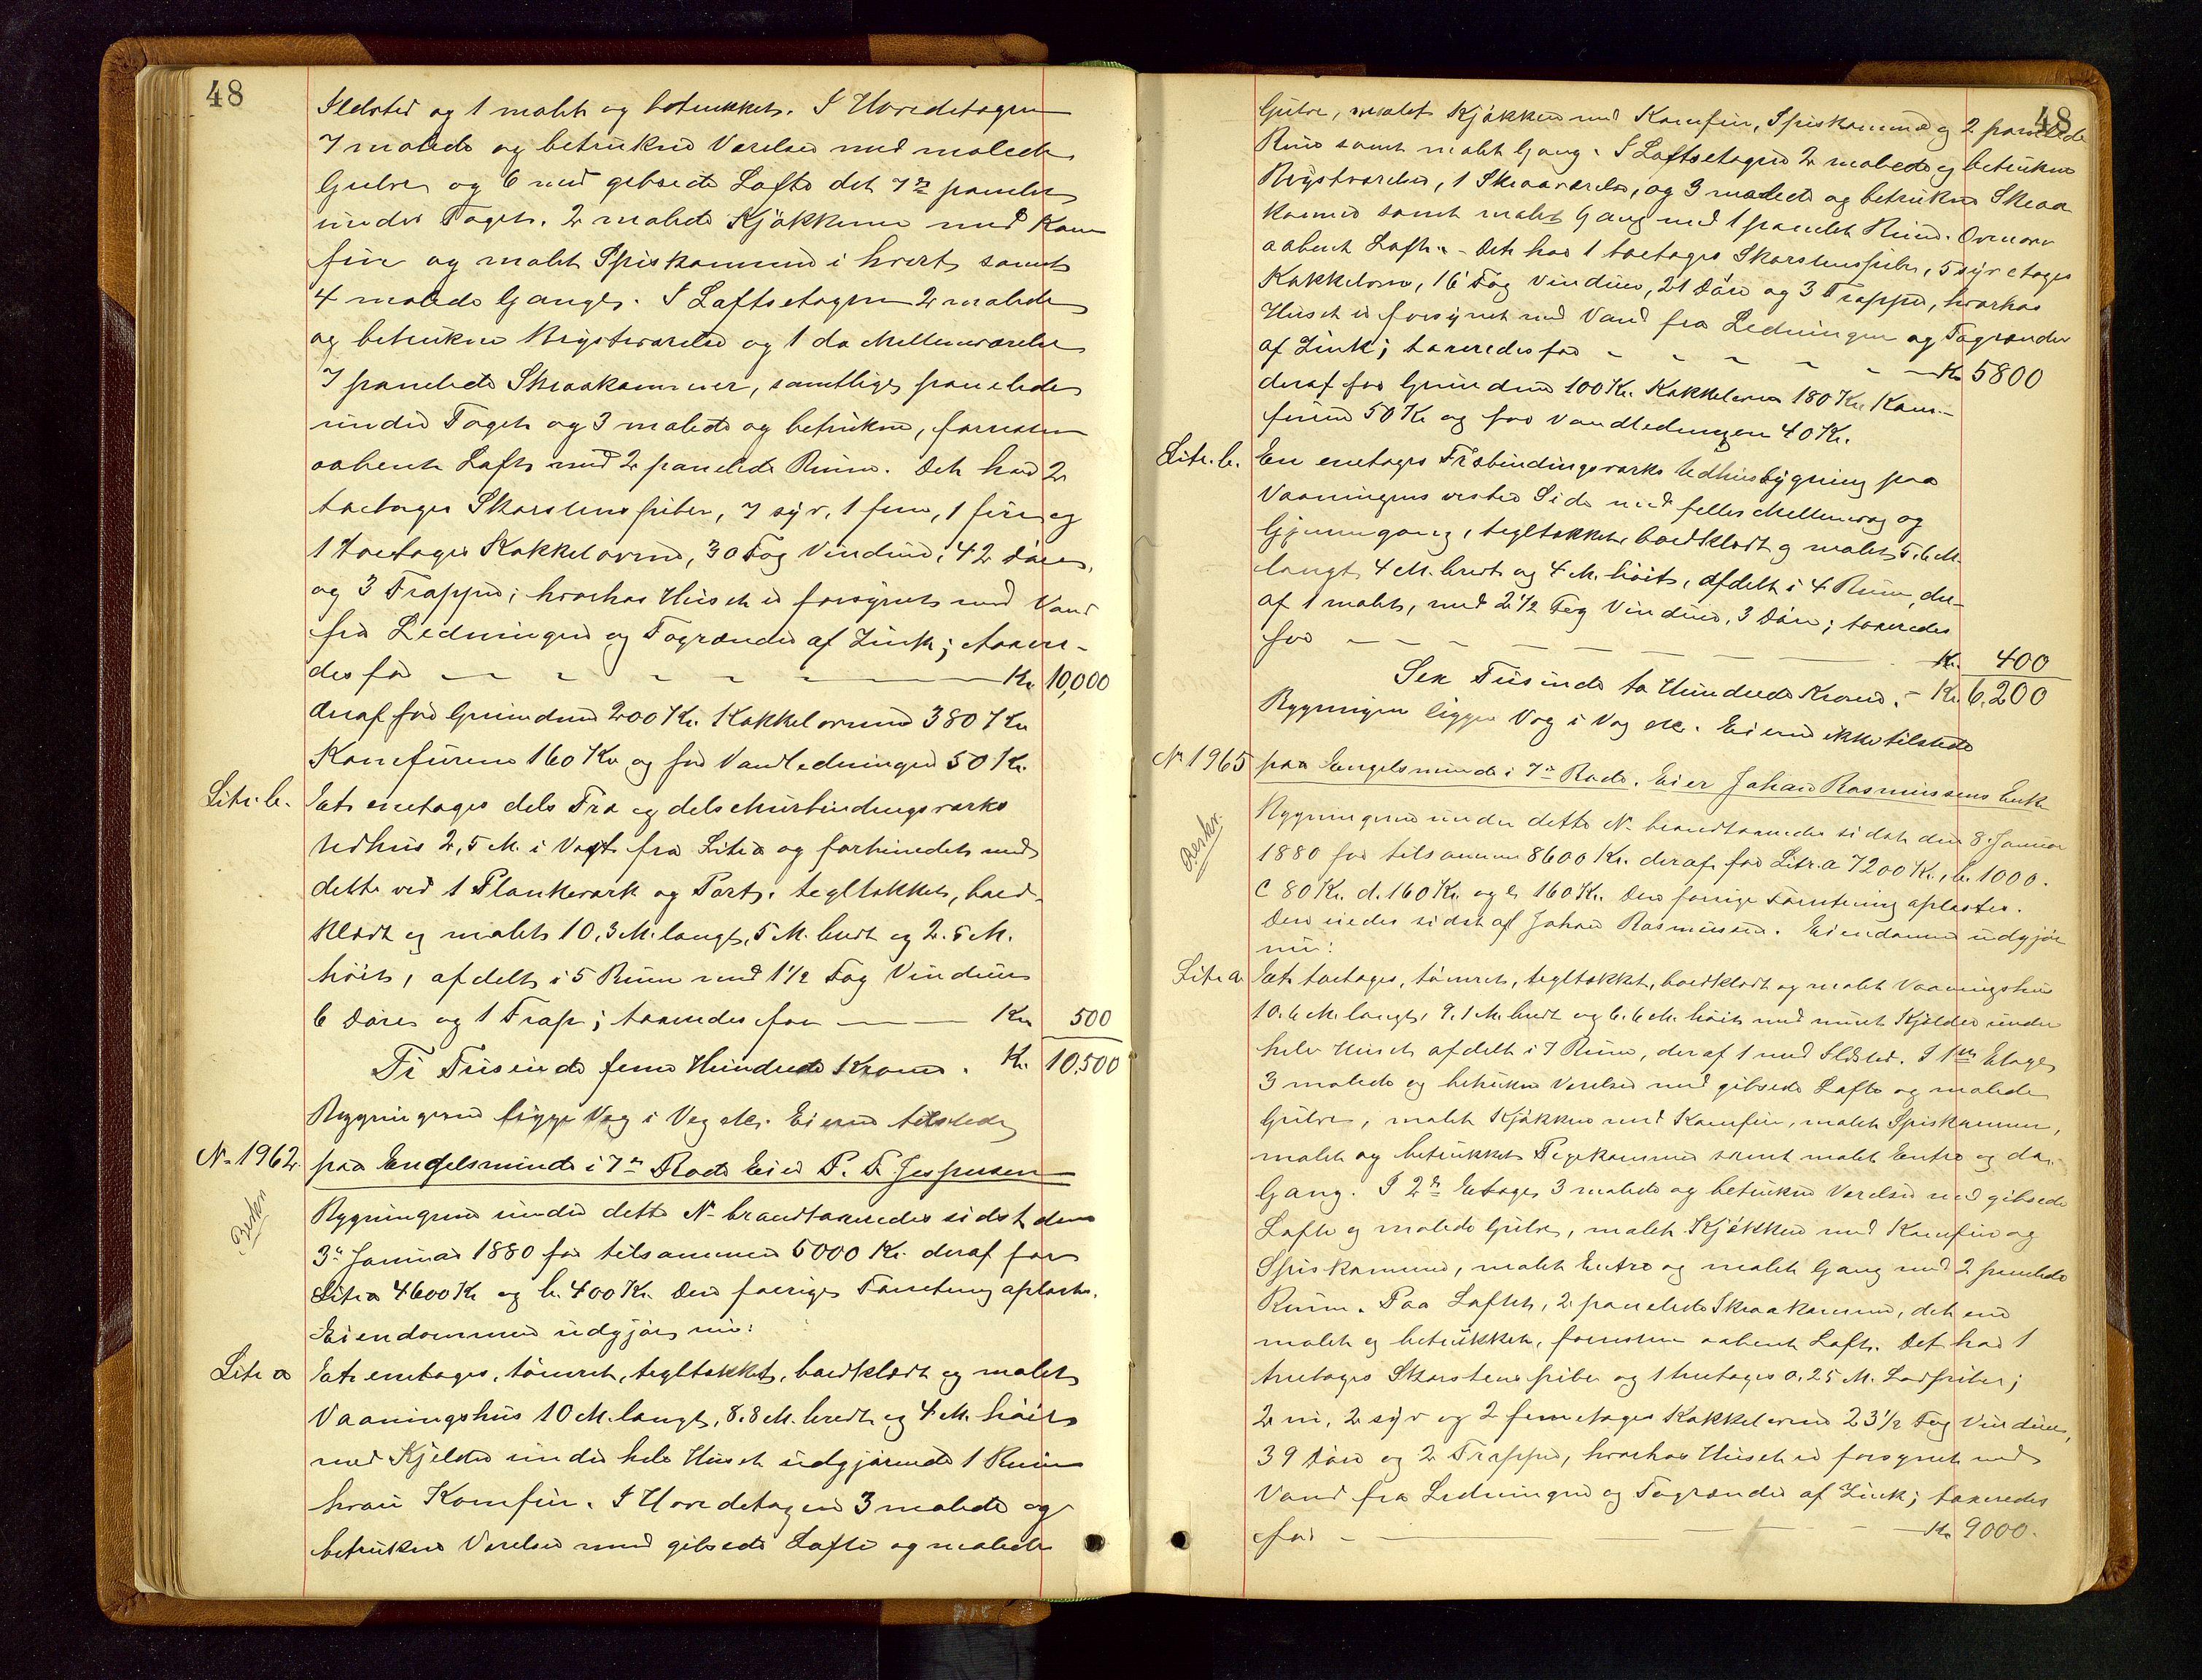 48
Ildsted og 1 malet og betrukket. I Hovedetagen
7 malede og betrukne Værelser med malede
Gulve og 6 med gibsede Lofte det 7de panelet
under Taget. 2 malede Kjøkkener med Kom
fur og malet Spiskammer i hvert samt
4 malede Gange. I Loftsetagen 2 malede
og betrukne Brystværelser og 1 do Mellemværelse
7 panelede Skraakammer, samtlige panelede
under Taget og 3 malede og betrukne, forresten
aabent Loft med 2 panelede Rum. Det har 2
toetages Skorstenspiber, 7 syv, 1 fem, 1 fire og
1 toetages Kakkelovne, 30 Fag Vinduer, 42 Døre,
og 3 Trapper; hvorhos Huset er forsynet med Vand
fra Ledningen og Tagrender af Zink; taxere-
des for — — — — Kr. 10,000
deraf for Grunden 200 Kr. Kakkelovnene 380 Kr.
Komfurene 160 Kr og for Vandledningen 50 Kr.
Litr. b. Et enetages dels Træ og dels Murbindingsværks
Udhus 2,5 M. i Vest fra Litr a og forbundet med
dette ved 1 Plankeværk og Port. tegltækket, bord-
klædt og malet 10,3 M. langt, 5 M. bredt og 2.5 M.
høit, afdelt i 5 Rum med 1 1/2 Fag Vinduer
6 Døre og 1 Trap; taxeredes for — — Kr. 500
Ti Tusinde fem Hundrede Kroner. Kr. 10,500
Bygningerne ligge Væg i Væg etc. Eieren tilstede
No 1962 paa Engelsminde i 7de Rode Eier P. T. Jespersen
Beskr.
Bygningerne under dette No brandtaxeredes sidst den
3de Januar 1880 for tilsammen 5000 Kr. deraf for
Litr a 4600 Kr og b. 400 Kr. Den forrige Forretning oplæstes.
Eiendommen udgjør nu:
Litr a Et enetages, tømret, tegltækket, bordklædt og malet
Vaaningshus 10 M. langt, 8.8 M. bredt og 4 M. høit
med Kjelder under hele Huset udgjørende 1 Rum
hvori Komfur. I Hovedetagen 3 malede og
betrukne Værelser med gibsede Lofte og malede
48
Gulve, malet Kjøkken med Komfur, Spiskammer og 2 panelede
Rum samt malet Gang. I Loftsetagen 2 malede og betrukne
Brystværelser, 1 Skraaværelse, og 3 malede og betrukne Skraa
kammer samt malet Gang med 1 panelet Rum. Ovenover
aabent Loft. - Det har 1 toetages Skorstenspibe, 5 syvetages
Kakkelovne, 16 Fag Vinduer, 21 Døre og 3 Trapper, hvorhos
Huset er forsynet med Vand fra Ledningen og Tagrender
af Zink; taxeredes for - - - - - Kr. 5800
deraf for Grunden 100 Kr. Kakkelovne 180 Kr. Kom-
furene 50 Kr og for Vandledningen 40 Kr.
Litr. b. En enetages Træbindingsværks Udhusbygning paa
Vaaningens vestre Side med fælles Mellemvæg og
Gjennemgang, tegltækket, bordklædt og malet 5.6 M.
langt, 4 M. bredt og 4 M. høit, afdelt i 4 Rum, der-
af 1 malet, med 2 1/2 Fag Vinduer, 3 Døre; taxeredes
for — — — — — — Kr. 400
Sex Tusinde to Hundrede Kroner. - Kr. 6,200
Bygningen ligger Væg i Væg etc. Eieren ikke tilstede
No 1965 paa Engelsminde i 7de Rode. Eier Johan Rasmussens Enke
Beskr.
Bygningerne under dette No brandtaxeredes sidst den 8 Januar
1880 for tilsammen 8600 Kr. deraf for Litr. a 7200 Kr., b. 1000.
c 80 Kr. d. 160 Kr. og e 160 Kr. Den forrige Forretning oplæstes.
Den eiedes sidst af Johan Rasmussen. Eiendommen udgjør
nu:
Litr a Et toetages, tømret, tegltækket, bordklædt og malet Vaaningshus
10.6 M. langt, 9.1 M. bredt og 6.6 M. høit med muret Kjelder under
hele Huset afdelt i 7 Rum, deraf 1 med Ildsted. I 1ste Etage
3 malede og betrukne Værelser med gibsede Lofte og malede
Gulve, malet Kjøkken med Komfur, malet Spiskammer,
malet og betrukket Pigekammer samt malet Entre og do.
Gang. I 2den Etage 3 malede og betrukne Værelser med gibsede
Lofte og malede Gulve, malet Kjøkken med Komfur og
Spiskammer, malet Entre og malet Gang med 2 panelede
Rum. Paa Loftet, 2 panelede Skraakammer, det ene
malet og betrukket, forresten aabent Loft. Det har 1
tretages Skorstenspibe og 1 tretages 0.25 M. Lodpibe;
2 ni, 2 syv og 2 femetages Kakkelovne 23 1/2 Fag Vinduer,
39 Døre og 2 Trapper, hvorhos Huset er forsynet med
Vand fra Ledningen og Tagrender af Zink; taxeredes
for - — — — — — Kr. 9000.